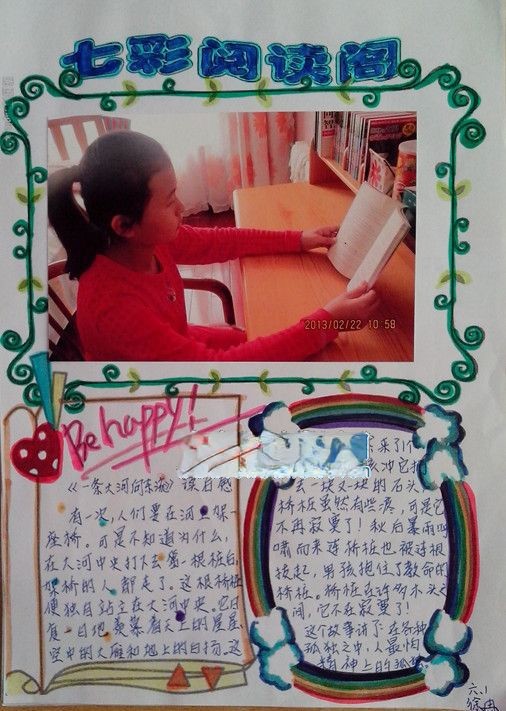 七彩阅读阁
2013/02/22 10:58
Be happy!
《一条大河向东流》读自感
有一次，人们要在河上架一
座桥。可是不知道为什么，
在大河中央打下去第一根桩后，
架桥的人都走了。这根桥桩
便独自站立在大河中央。它日
复一日地羡慕着天上的星星、
空中的大雁和地上的白杨。这
来了1个
冲它扔
去一块又一块的石头，
桥桩虽然有些疼，可是它
不再寂寞了！秋后暴雨呼
啸而来连桥桩也被连根
拔起，男孩抱住了救命的
桥桩。桥桩在许多木头之
间，它不在寂寞了！
这个故事讲了：在各种
孤独之中，人最怕
精神上的孤独
六.1
徐冉